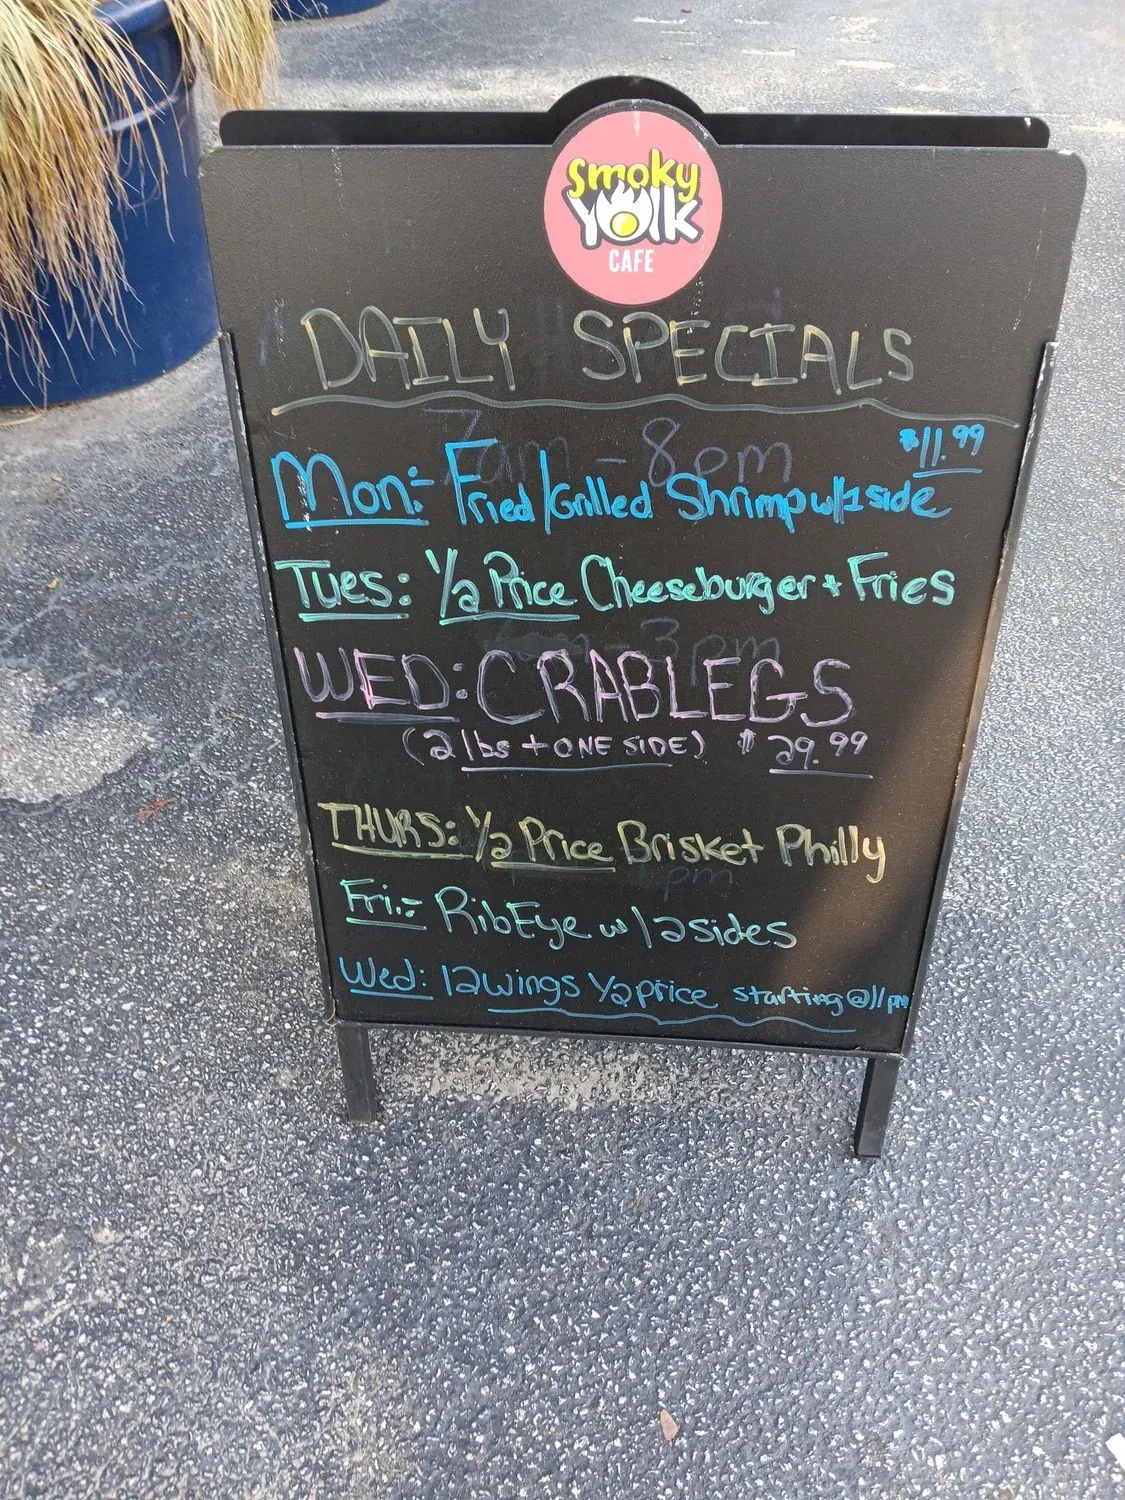 smoky
Yolk
CAFE
DAILY SPECIALS
7am - 8pm
$11.99
Mon:- Fried/Grilled Shrimp w/1 side
Tues: 1/2 Price Cheeseburger + Fries
- 3pm
WED: CRABLEGS
(2 lbs + ONE SIDE) $29.99
THURS: 1/2 Price Brisket Philly
pm
Fri:- RibEye w/2 sides
Wed: 12 wings 1/2 price starting @ 11pm